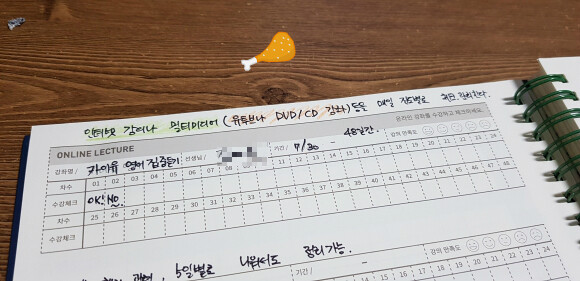 인터넷 강의나 멀티미디어 (유튜브나 DVD/CD 강좌)등은 매일 진도별로 체크 관리한다.
ONLINE LECTURE
온라인 강좌를 수강하고 체크하세요.
강좌명 / 카이유 영어 집중듣기 선생님 / 기간 / 7/30 - 48일간. 강의 만족도
차수 01 02 03 04 05 06 07 08 09 10 11 12 13 14 15 16 17 18 19 20 21 22 23 24
수강체크 OK! NO.
차수 25 26 27 28 29 30 31 32 33 34 35 36 37 38 39 40 41 42 43 44 45 46 47 48
수강체크
5일별로 나눠서도 관리 가능.
기간 / - 강의 만족도
13 14 15 16 17 18 19 20 21 22 23 24